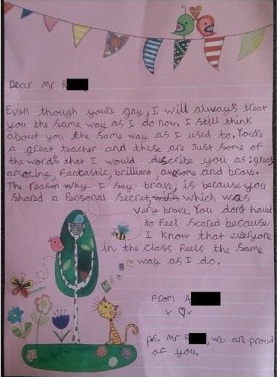 Dear Mr R
Even though you're gay, I will always treat
you the same way as I do now. I still think
about you the same way as I used to. You're
a great teacher and these are just some of
the words that I would describe you as: great,
amazing, fantastic, brilliant, awesome and brave.
The reason why I say brave, is because you
shared a personal secret, which was
very brave. You don't have
to feel scared because
I know that everyone
in the class feels the same
way as I do.
From A
x ♡ x
ps. Mr R, we are proud
of you.